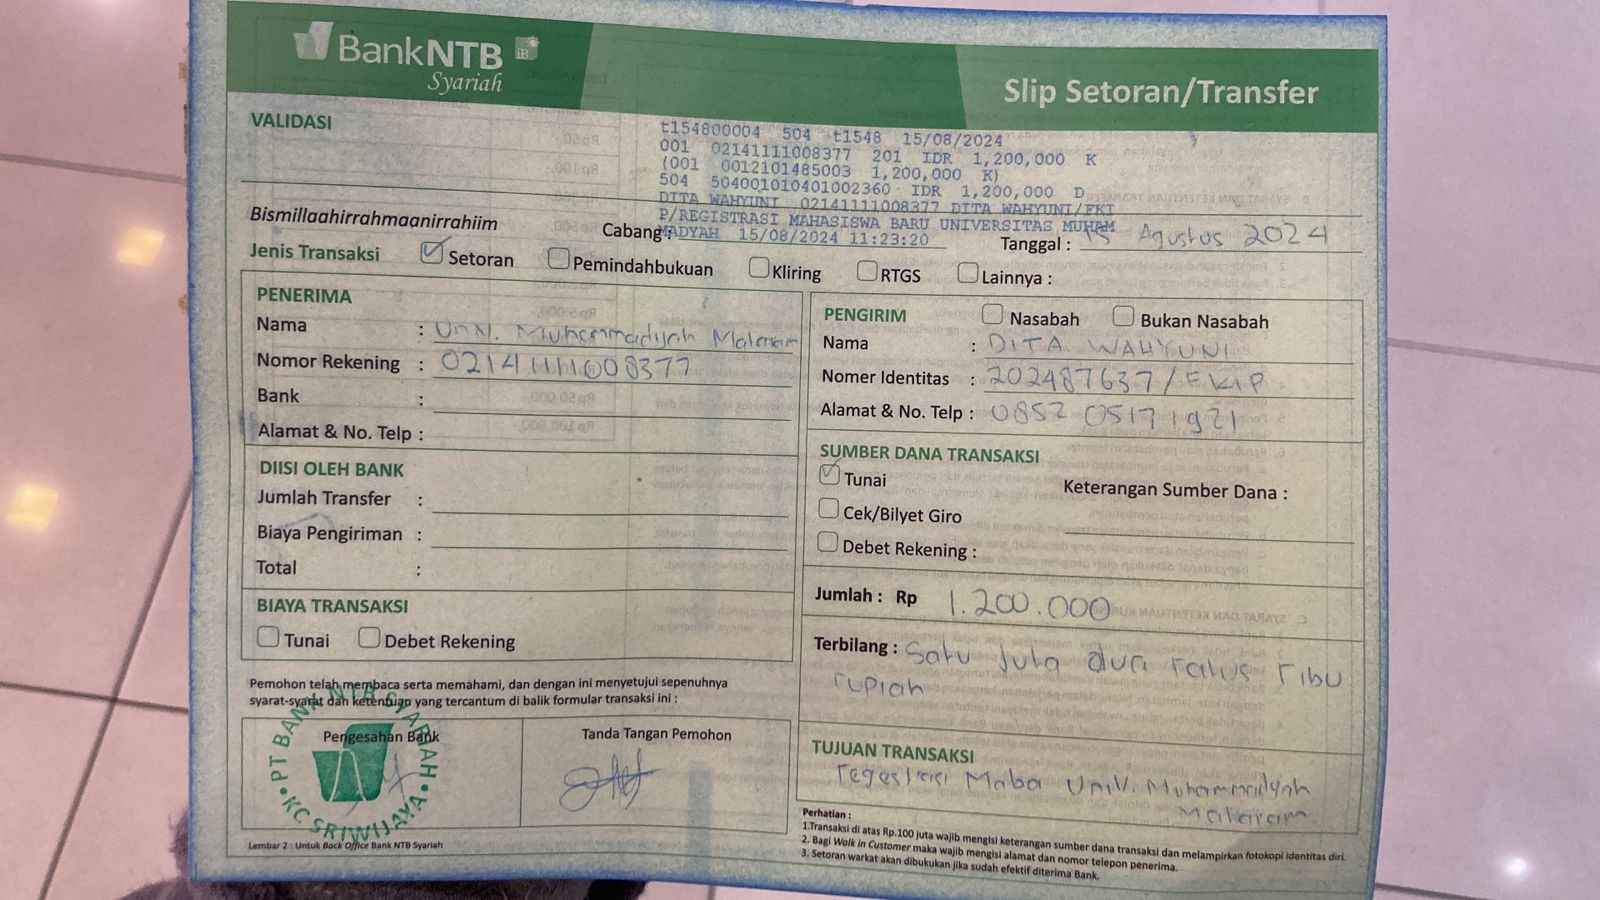 BankNTB
Syariah
iB
Slip Setoran/Transfer
VALIDASI
t154800004 504 t1548 15/08/2024
001 02141111008377 201 IDR 1,200,000 K
(001 0012101485003 1,200,000 K)
504 504001010401002360 IDR 1,200,000 D
DITA WAHYUNI 02141111008377 DITA WAHYUNI/FKI
P/REGISTRASI MAHASISWA BARU UNIVERSITAS MUHAM
MADYAH 15/08/2024 11:23:20
Bismillaahirrahmaanirrahiim
Cabang :
Tanggal : 15 Agustus 2024
Jenis Transaksi Setoran Pemindahbukuan Kliring RTGS Lainnya :
PENERIMA
Nama : Univ. Muhammadiyah Mataram
Nomor Rekening : 02141111008377
Bank :
Alamat & No. Telp :
DIISI OLEH BANK
Jumlah Transfer :
Biaya Pengiriman :
Total :
BIAYA TRANSAKSI
Tunai Debet Rekening
Pemohon telah membaca serta memahami, dan dengan ini menyetujui sepenuhnya
syarat-syarat dan ketentuan yang tercantum di balik formular transaksi ini :
Pengesahan Bank
Tanda Tangan Pemohon
PT BANK NTB SYARIAH
KC SRIWIJAYA
Lembar 2 : Untuk Back Office Bank NTB Syariah
PENGIRIM Nasabah Bukan Nasabah
Nama : DITA WAHYUNI
Nomer Identitas : 202487637/FKIP
Alamat & No. Telp : 0852 05171921
SUMBER DANA TRANSAKSI
Tunai Keterangan Sumber Dana :
Cek/Bilyet Giro
Debet Rekening :
Jumlah : Rp 1.200.000
Terbilang : Satu Juta dua ratus ribu
rupiah
TUJUAN TRANSAKSI
regestrasi Maba Univ. Muhammadiyah
Mataram.
Perhatian :
1.Transaksi di atas Rp.100 juta wajib mengisi keterangan sumber dana transaksi dan melampirkan fotokopi identitas diri.
2. Bagi Walk in Customer maka wajib mengisi alamat dan nomor telepon penerima.
3. Setoran warkat akan dibukukan jika sudah efektif diterima Bank.